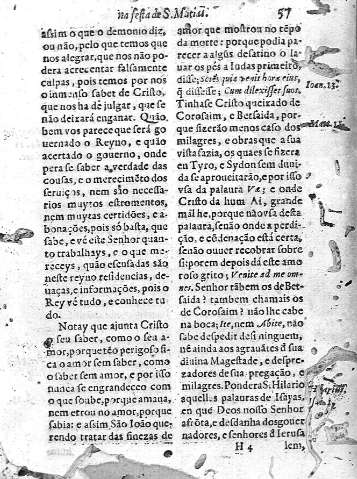 na festa de S. Matias. 57
assim o que o demonio diz,
ou não, pelo que temos que
nos alegrar, que nos não po-
dera acrecentar falsamente
culpas, pois temos por nos
o inmenso saber de Cristo,
que nos ha de julgar, que se
não deixará enganar. Quão
bem vos parece que será go
uernado o Reyno, e quão
acertado o gouerno, onde
pera se saber a verdade das
cousas, e o merecimẽto dos
seruiços, nem são necessa-
rios muytos estromentos,
nem muytas certidões, e a-
bonações, pois só basta, que
sabe, e vé este Senhor quan-
to trabalhays, e o que me-
receys, quão escusadas são
neste reyno residencias, de-
uaças, e informações, pois o
Rey vé tudo, e conhece tu-
do.
Notay que ajunta Cristo
o seu saber, como o seu a-
mor, porque tẽ perigoso fi-
ca o amor sem saber, como
o saber sem amor, e por isso
nunca se engrandeceo com
o que soube, porque amaua,
nem errou no amor, porque
sabia: e assim São Ioão que-
rendo tratar das finezas de
amor que mostrou no tẽpo
da morte: porque podia pa-
recer a algũs desatino o la-
uar os pès a Iudas primeiro,
disse; Sciẽs quia venit hora eius,
q̃ dissesse; Cum dilexisset suos.
Tinhase Cristo queixado de
Corosaim, e Betsaida, por-
que fizerão menos caso dos
milagres, e obras que a sua
vista fazia, os quais se fizera
em Tyro, e Sydon sem duui-
da se aproueitarão, e por isso
vsa da palaura Væ; e onde
Cristo da hum Ai, grande
mal he, porque não vsa desta
palaura, senão onde a perdi-
ção, e cõdenação está certa,
senão ouuer recobrar sobre
si: porem depois dá este amo
roso grito; Venite ad me om-
nes. Senhor tãbem os de Bet-
saida? tambem chamais os
de Corosaim? não lhe cabe
na boca; Ite, nem Abite, não
sabe despedir desi ninguem,
nẽ ainda aos agrauãtes d sua
diuina Magestade, e despre-
zadores de sua pregação, e
milagres. Pondera S. Hilario
aquellas palauras de Isayas,
em que Deos nosso Senhor
afrõta, e desdanha dos gouer
nadores, e senhores d Ierusa
Ioan. 13.
H 4 lem,